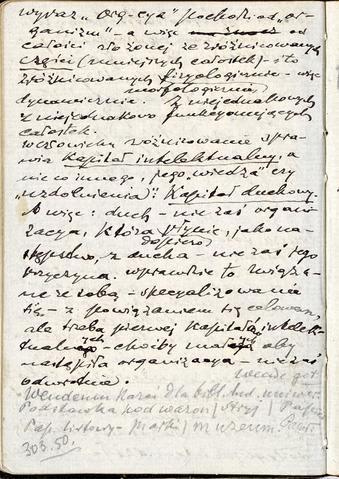 wyraz „org-cya" pochodzi od „or-
ganizm" – a więc od
całości złożonej ze zróżnicowanych
części (mniejszych całostek) – i to
zróżnicowanych fizyologicznie – więc
morfologicznie
dynamicznie. Z niejednakowych
z niejednakowo funkcyonujących
całostek.
W człowieku różnicowanie spra-
wia Kapitał intelektualny, a
nic innego, jego „wiedza" czy
„uzdolnienia": Kapitał duchowy.
A więc: duch – nie zaś organi-
zacya, która płynie, jako na-
dopiero
stępstwo, z ducha – nie zaś jego
przyczyna. Wprawdzie to związa-
ne ze sobą – specyalizowanie
się – z powiązaniem się celowem,
ale trzeba pierwej Kapitału intelek-
tualnego choćby aby
nastąpiła organizacya – nie zaś
odwrotnie.
dla bibl.
Podstawka pod wazon
Pap. listowy – Marki
303.50.